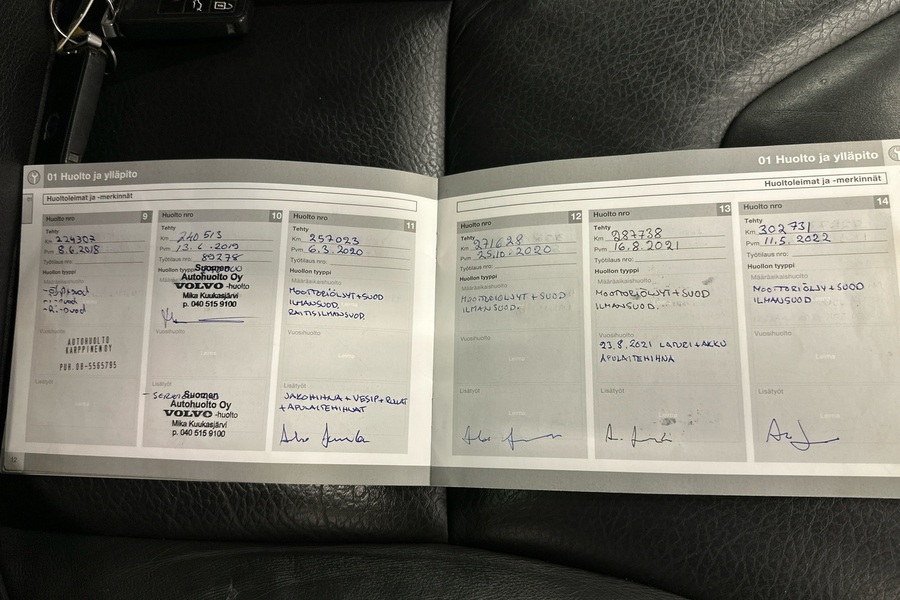 01 Huolto ja ylläpito
Huoltoleimat ja -merkinnät
Huolto nro 9
Tehty
Km 224302
Pvm 8.6.2018
Työtilaus nro:
Huollon tyyppi
AUTOHUOLTO
KARPPINEN OY
PUH. 08-5565795
Lisätyöt
12
Huolto nro 10
Tehty
Km 240513
Pvm 13.6.2019
Työtilaus nro: 89278
Huollon tyyppi
Suomen
Autohuolto Oy
VOLVO -huolto
Mika Kuukasjärvi
p. 040 515 9100
Vuosihuolto
Leima
Lisätyöt
Suomen
Autohuolto Oy
VOLVO -huolto
Mika Kuukasjärvi
p. 040 515 9100
Huolto nro 11
Tehty
Km 257023
Pvm 6.3.2020
Työtilaus nro:
Huollon tyyppi
Määräaikaishuolto
MOOTTORIÖLJYT+SUOD
ILMANSUOD.
RAITISILMANSUOD.
Vuosihuolto
Leima
Lisätyöt
JAKOHIHNA+VESIP+RULLAT
+APULAITEHIHNAT
01 Huolto ja ylläpito
Huoltoleimat ja -merkinnät
Huolto nro 12
Tehty
Km 271628
Pvm 25.10.2020
Työtilaus nro:
Huollon tyyppi
Määräaikaishuolto
MOOTTORIÖLJYT+SUOD
ILMANSUOD.
Vuosihuolto
Leima
Lisätyöt
Leima
Huolto nro 13
Tehty
Km 287738
Pvm 16.8.2021
Työtilaus nro:
Huollon tyyppi
Määräaikaishuolto
MOOTTORIÖLJYT+SUOD
ILMANSUOD.
Vuosihuolto
23.8.2021 LATURI+AKKU
APULAITEHIHNA
Leima
Lisätyöt
Leima
Huolto nro 14
Tehty
Km 302731
Pvm 11.5.2022
Työtilaus nro:
Huollon tyyppi
Määräaikaishuolto
MOOTTORIÖLJYT+SUOD
ILMANSUOD
Vuosihuolto
Leima
Lisätyöt
Leima